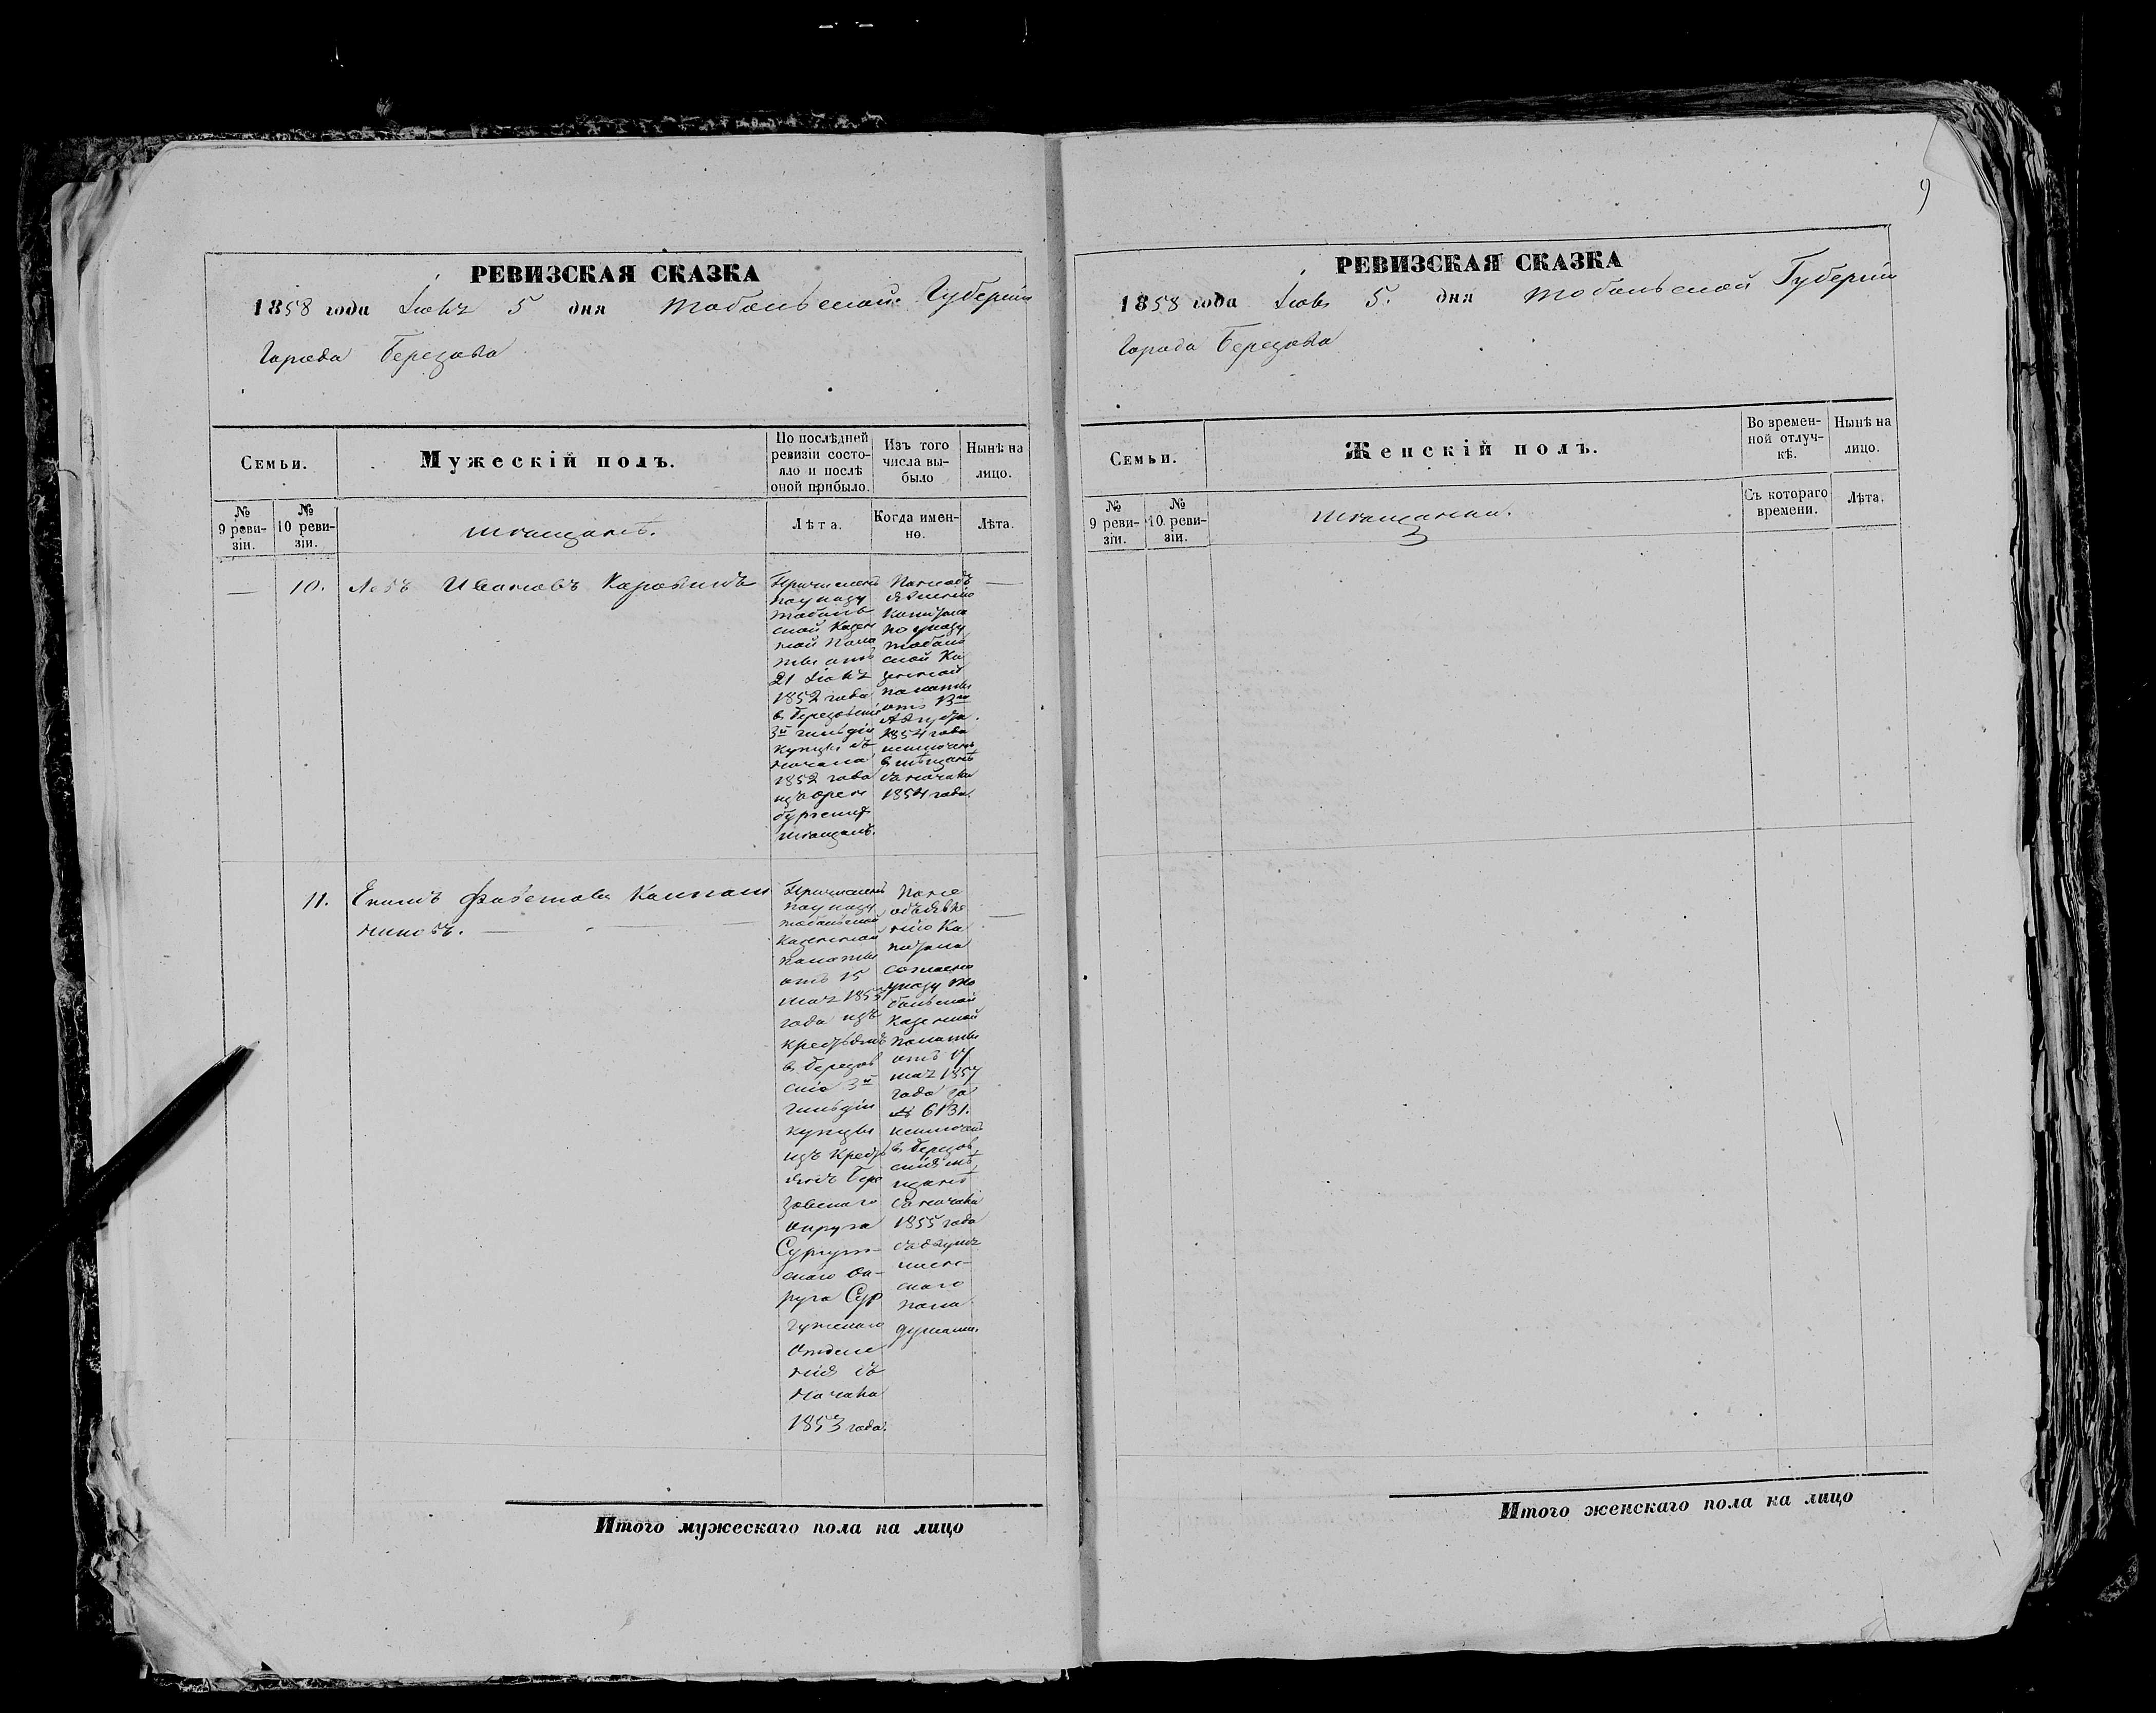 РЕВИЗСКАЯ СКАЗКА
1858 года 5 дня Тобольской Губерніи
Города Березова
Семьи.
Мужескій полъ.
По послѣдней ревизіи состо-
яло и послѣ
оной прибыло.
Изъ того
числа вы-
было
Нынѣ на
лицо.
№
9 реви-
зіи.
№
10 реви-
зіи.
мѣщанѣ.
Лѣта.
Когда имен-
но.
Лѣта.
— 10. Ивановъ
Причисленъ
по указу
Тоболь
ской Казен
ной Пала
ты отъ
21
1852 года
в Березовскіе
3й гильдіи
купцы съ
начала
1852 года
изъ Орен
бургских
мѣщанъ.
По необъ
явленію
Капитала
по указу
Тоболь
ской Ка
зенной
палаты
отъ 13го
Августа
1854 года
в мѣщанѣ
съ начала
1854 года.
—
11.
Причисленъ
по указу
Тобольской
Казенной
палаты
отъ 15
года изъ
крестьянъ
в Березов
скіе 3й
гильдіи
купцы
изъ Крестъ
янъ Бере
зовскаго
округа
Сургут-
скаго Ок-
руга Сур
гутскаго
Отделе
нія съ
начала
1853 года.
По не
объявле
нію Ка
питала
согласно
указу То
больской
Казенной
палаты
отъ 17
1857
года за
№ 6131.
в Березов
скія мѣ
щанѣ
съ начала
1855 года
скаго
пола
душами.
—
Итого мужескаго пола на лицо
9
РЕВИЗСКАЯ СКАЗКА
1858 года 5. дня Тобольской Губерніи
Города Березова
Семьи.
Женскій полъ.
Во времен-
ной отлуч-
кѣ.
Нынѣ на
лицо.
№
9 реви-
зіи.
№
10. реви-
зіи.
мѣщанки.
Съ котораго
времени.
Лѣта.
Итого женскаго пола на лицо